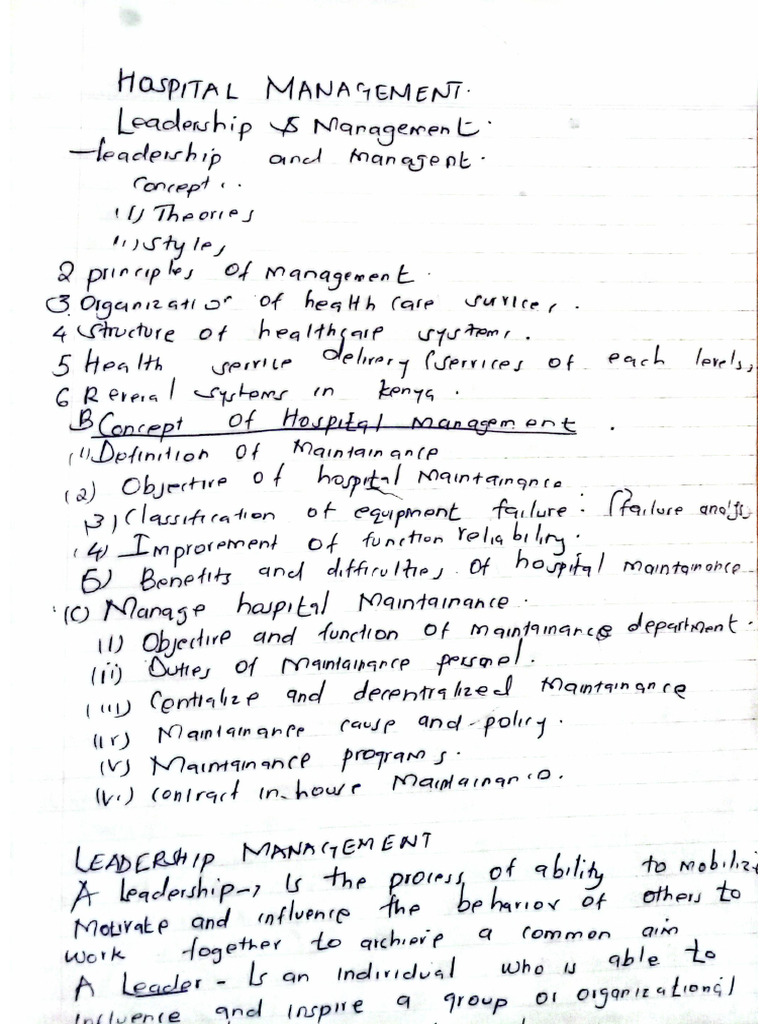 HOSPITAL MANAGEMENT.
Leadership & Management.
- leadership and managent.
Concept..
(i) Theories
(ii) Styles
2 principles of management.
3 Organization of health care survices.
4 Structure of healthcare systems.
5 Health service delivery (services of each levels,
6 Reveral systems in kenya.
B Concept Of Hospital Management.
(1) Definition Of Maintainance
(2) Objective of hospital Maintainance
(3) Classification of equipment failure: (failure
(4) Improvement of function reliability.
5) Benefits and difficulties of hospital maintainance
(C) Manage hospital Maintainance.
(i) Objective and function of maintainance department.
(ii) Duties of Maintainance personel.
(iii) Centralize and decentralized Maintainance
(iv) Maintainance cause and policy.
(v) Maintainance programs.
(vi) contract in-house Maintainance.
LEADERSHIP MANAGEMENT
A leadership -> Is the process of ability to mobiliz
Motivate and influence the behavior of others to
work together to archieve a common aim
A Leader - Is an individual who is able to
influence and inspire a group or organizational